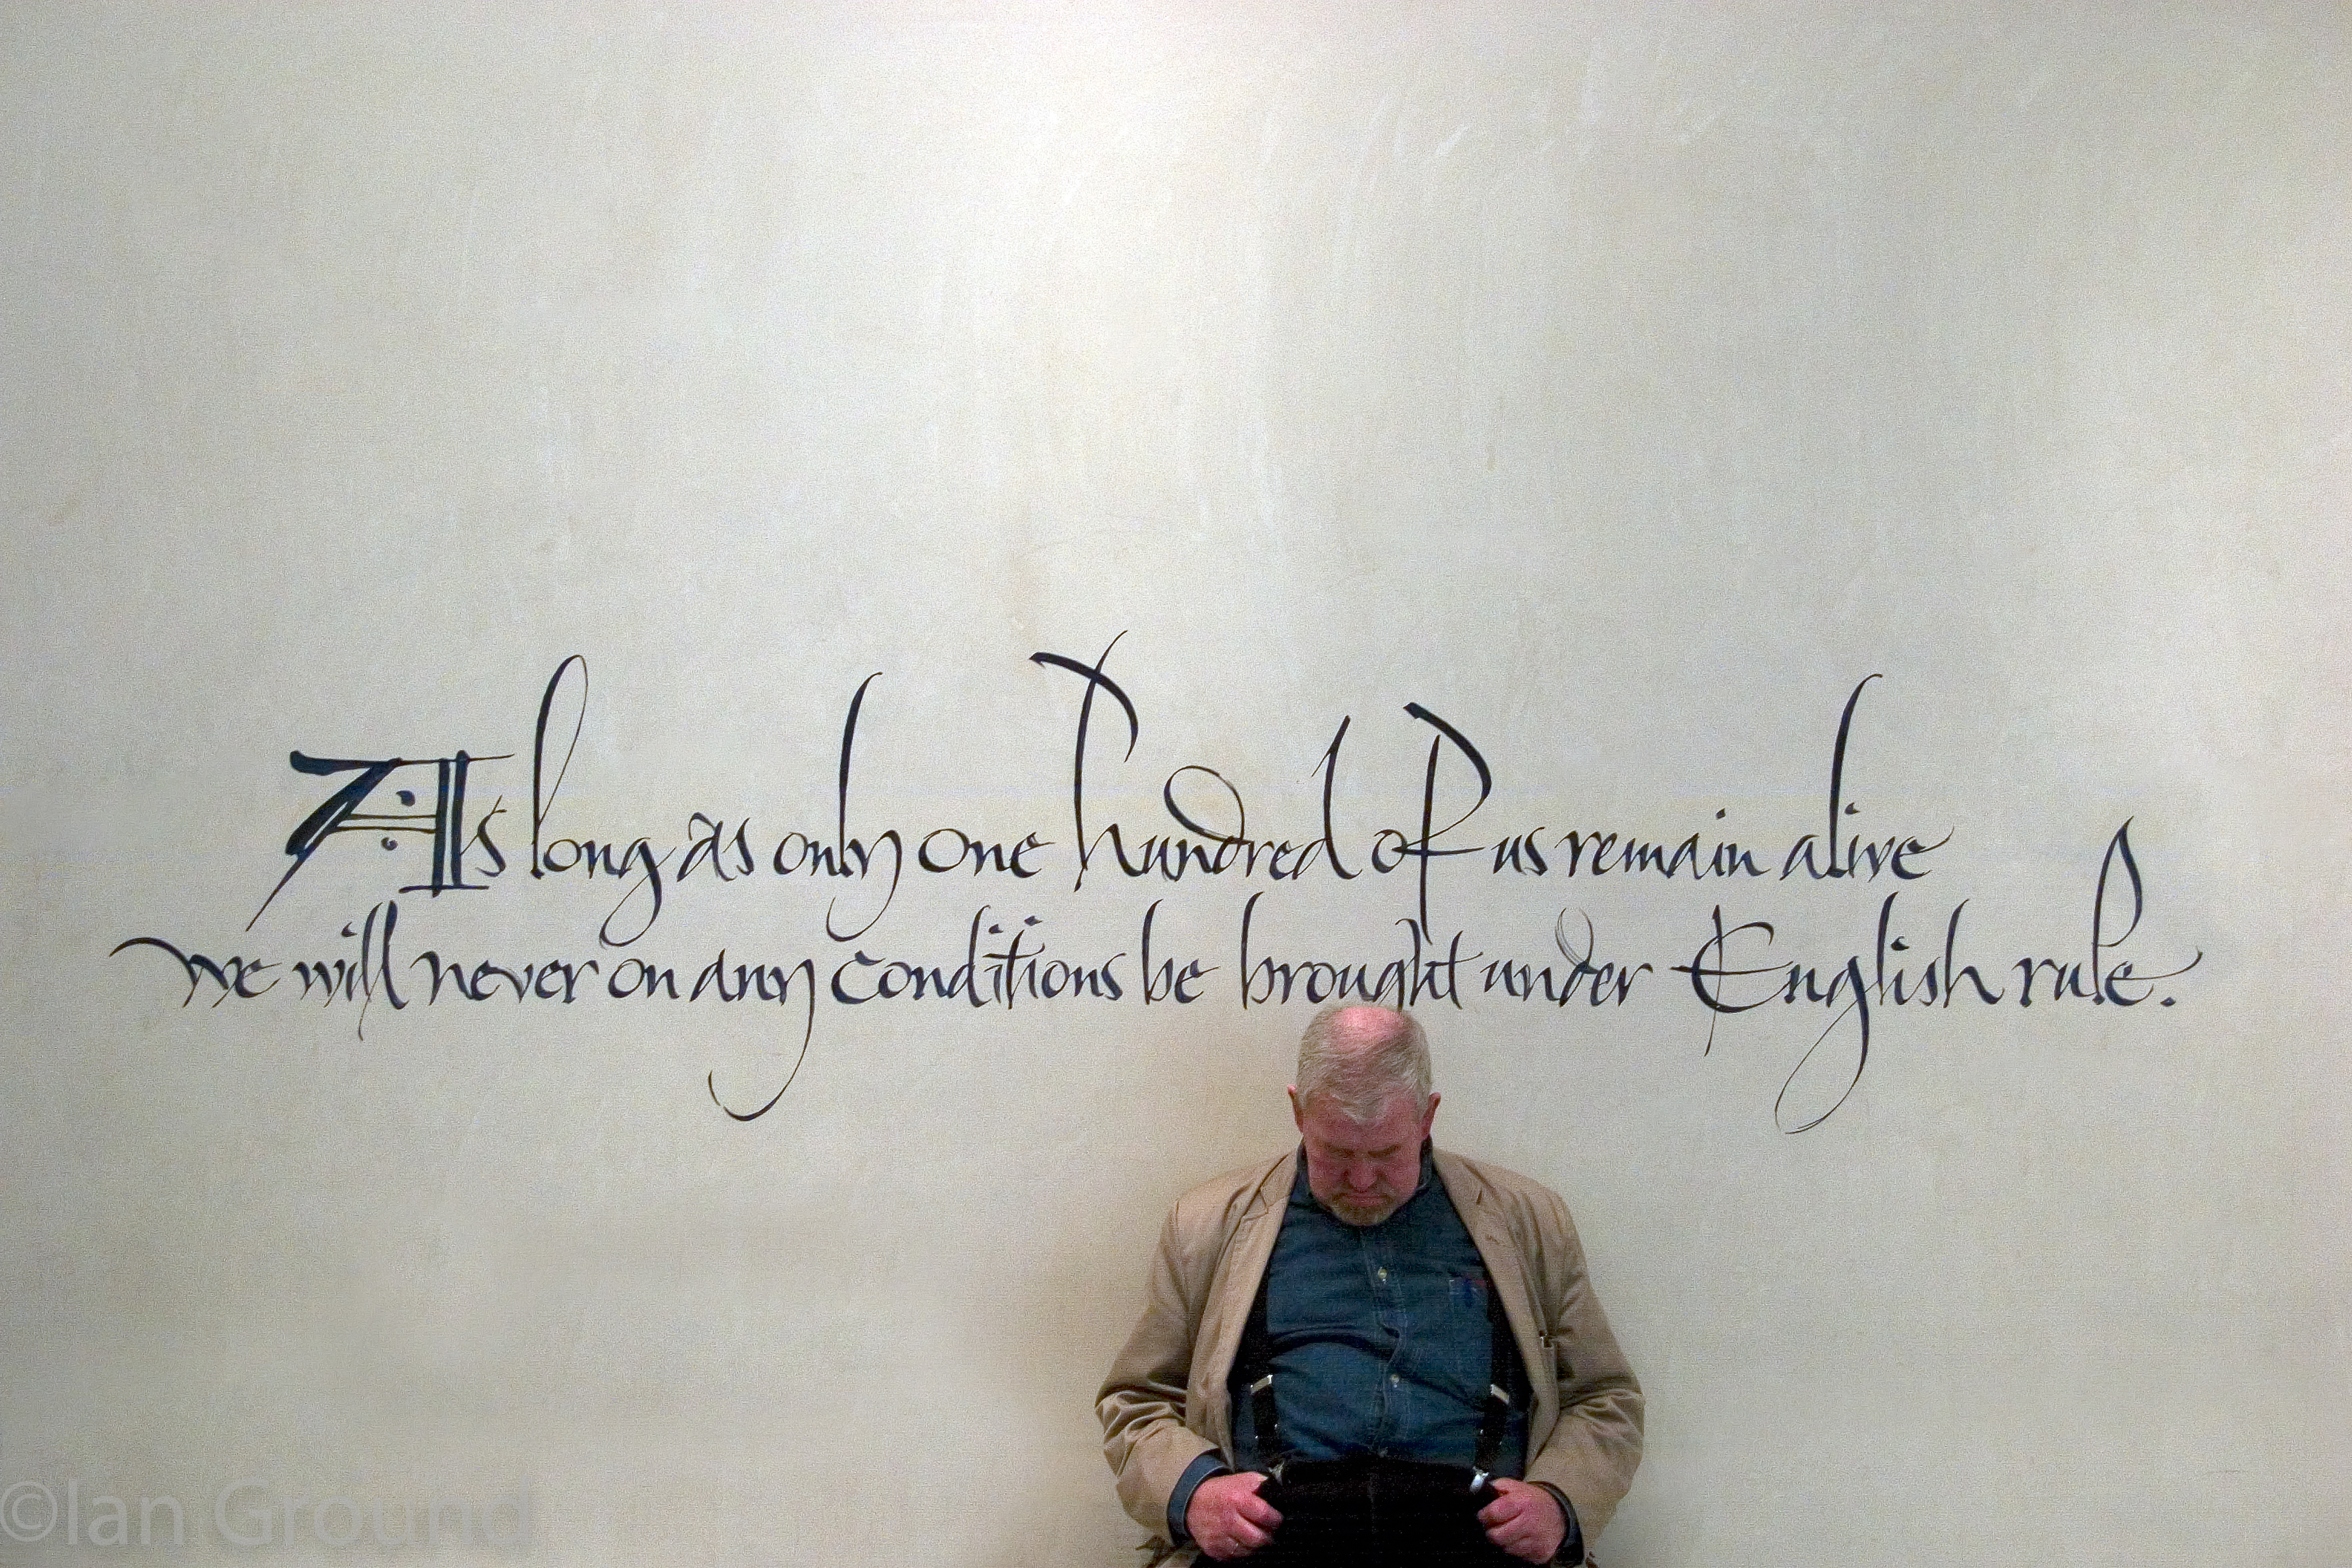 As long as only one hundred of us remain alive
we will never on any conditions be brought under English rule.
©Ian Ground